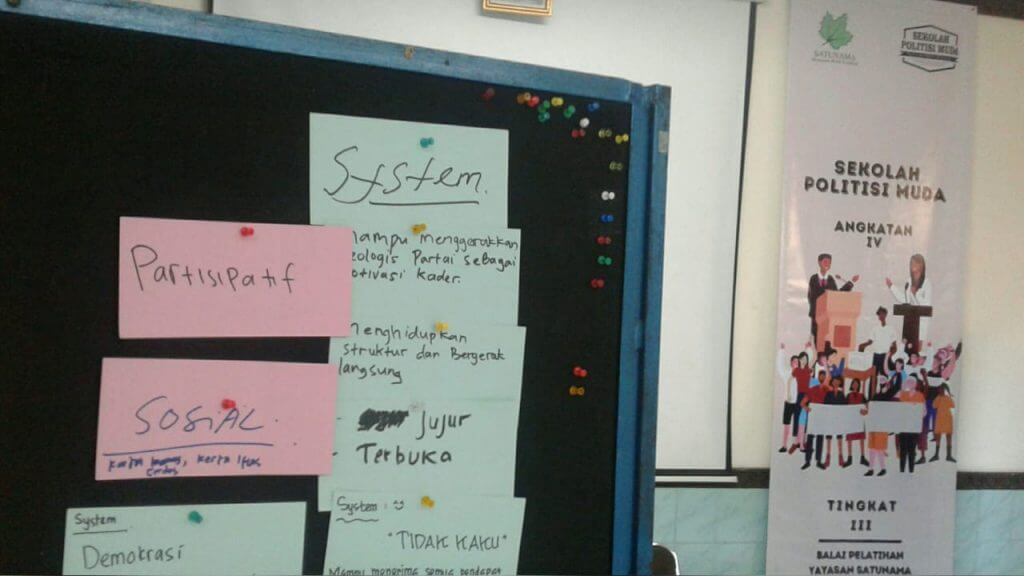 System.
Partisipatif
ampu menggerakkan
eologis Partai sebagai
otivasi kader.
enghidupkan
struktur dan Bergerak
langsung
SOSIAL.
kerja
cerdas
- Jujur
- Terbuka
System
Demokrasi
System :
"TIDAK KAKU"
Mampu menerima semua pendapat
SATUNAMA
SEKOLAH
POLITISI MUDA
SEKOLAH
POLITISI MUDA
ANGKATAN
IV
TINGKAT
III
BALAI PELATIHAN
YAYASAN SATUNAMA